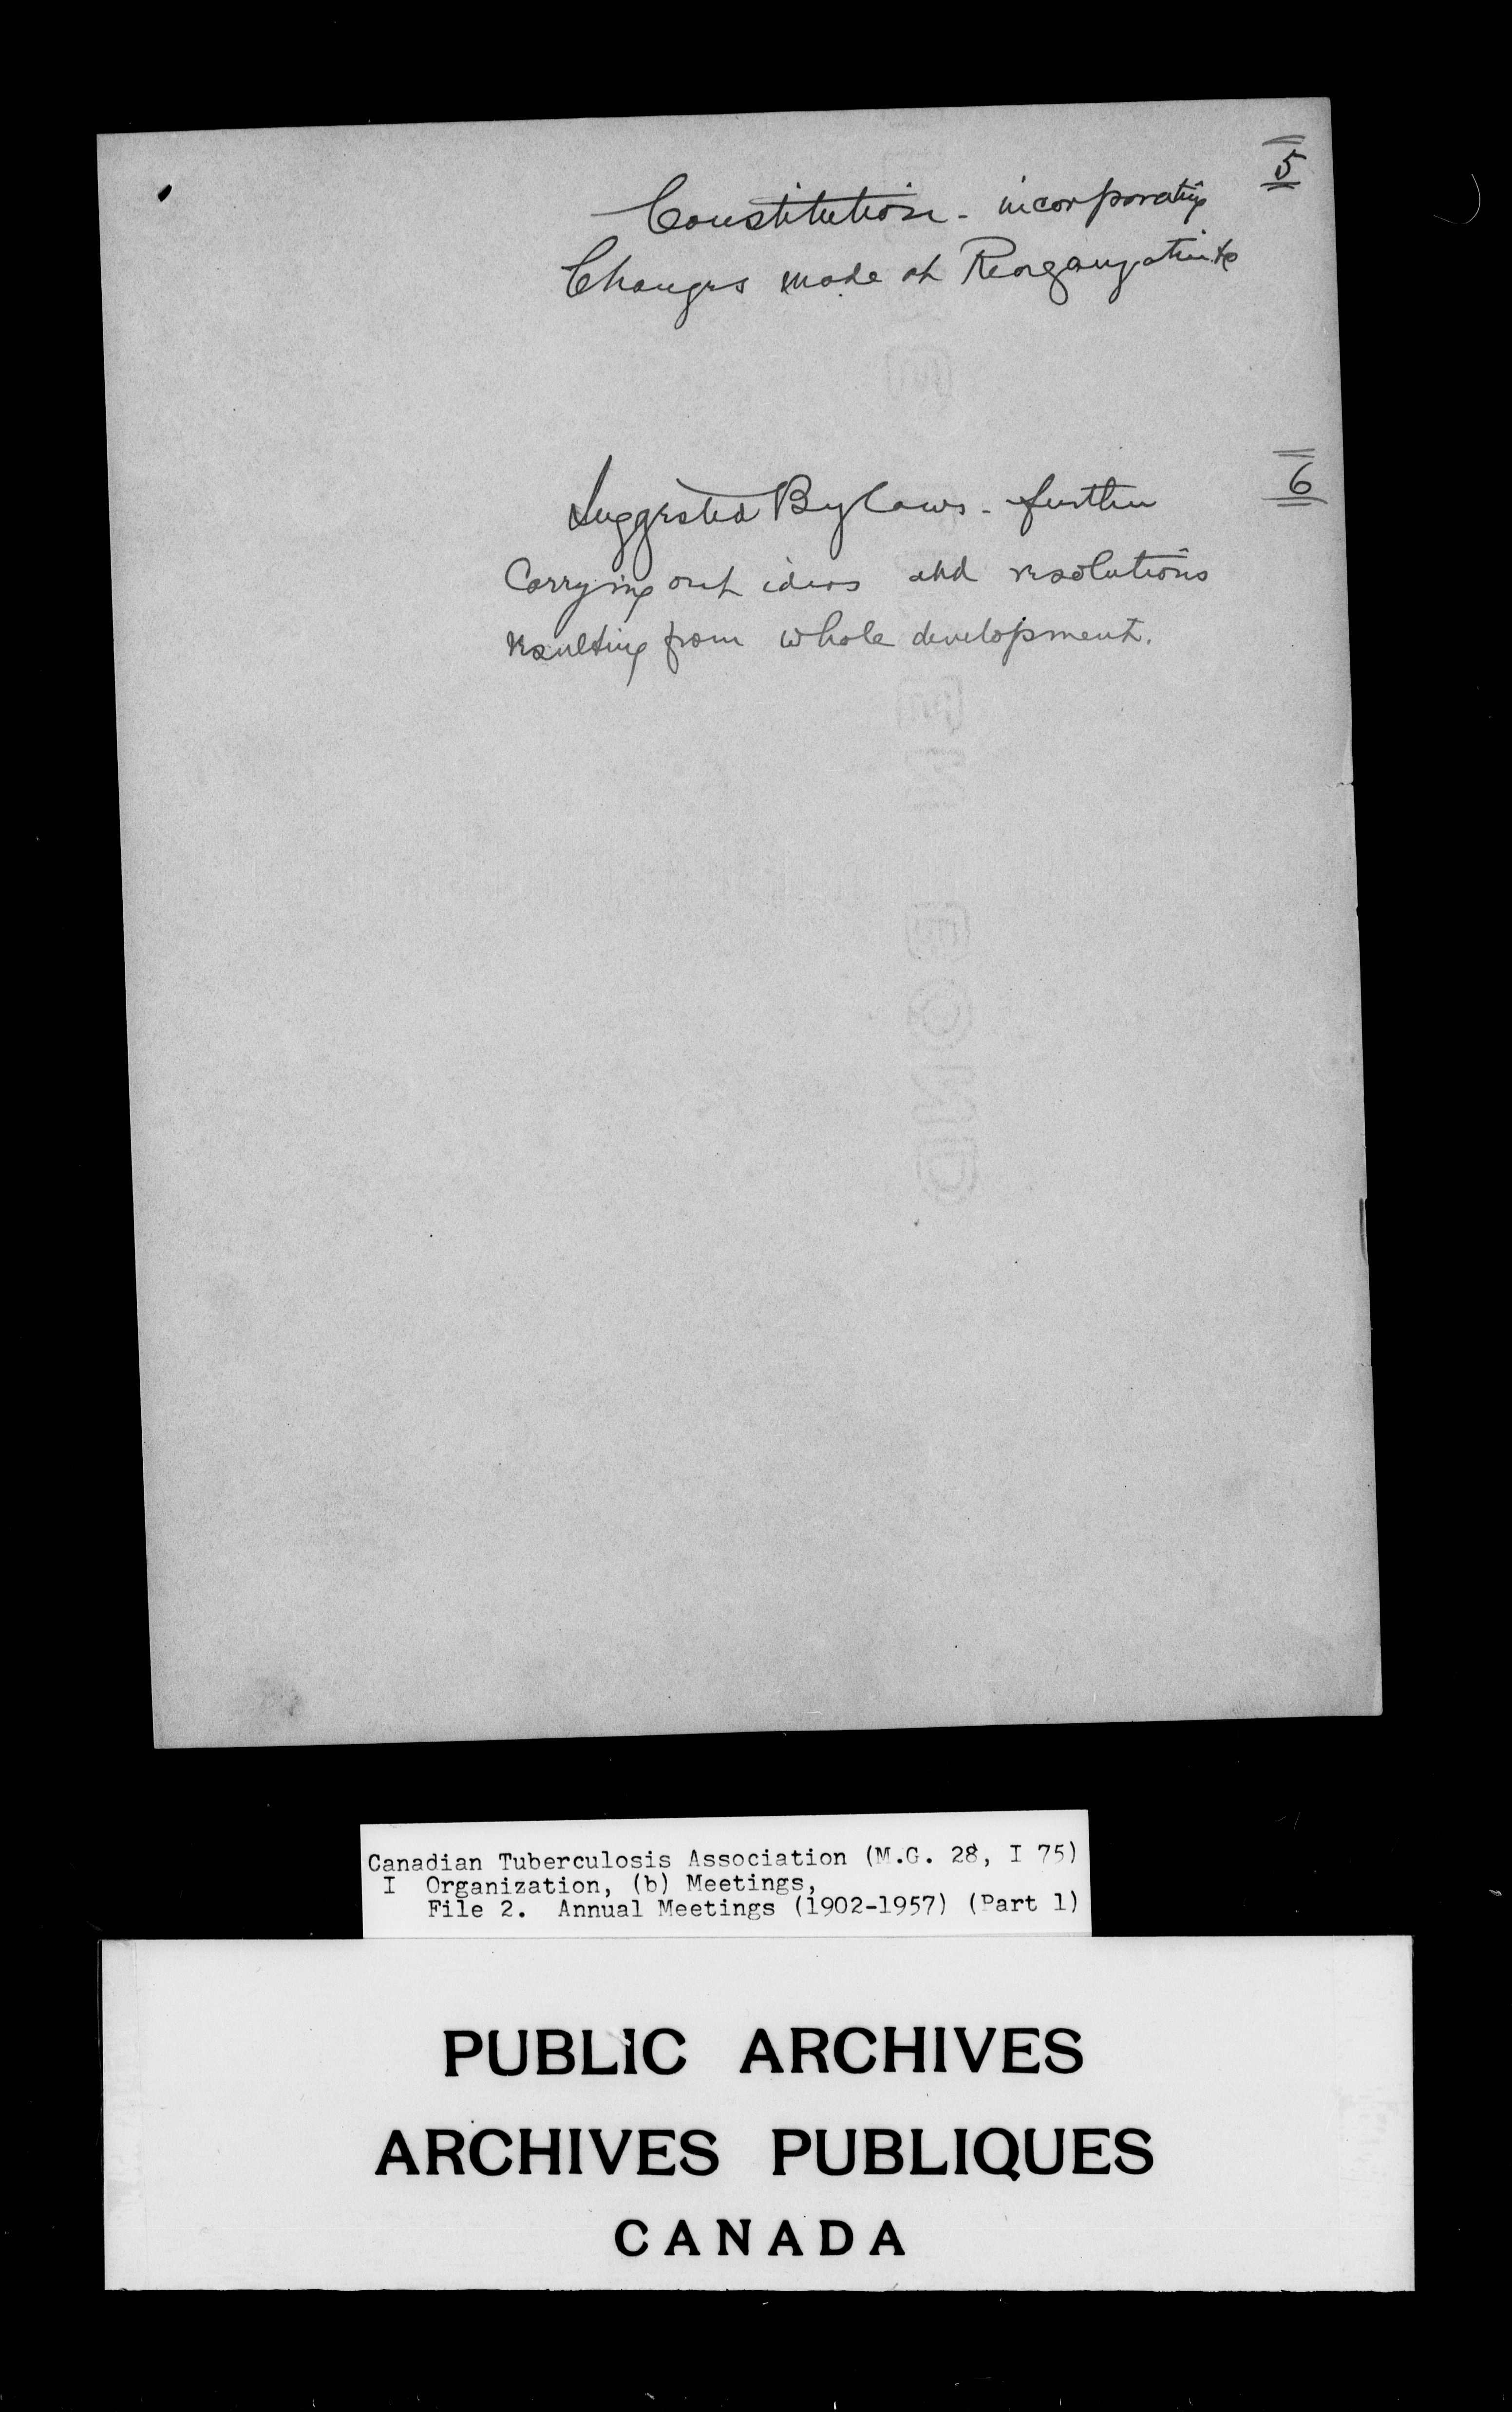 5
Constitution - incorporating
Changes made at Reorganization
6
Suggested Bylaws - further
Carrying out ideas and resolutions
resulting from whole development.
Canadian Tuberculosis Association (M.G. 28, I 75)
I Organization, (b) Meetings,
File 2. Annual Meetings (1902-1957) (Part 1)
PUBLIC ARCHIVES
ARCHIVES PUBLIQUES
CANADA